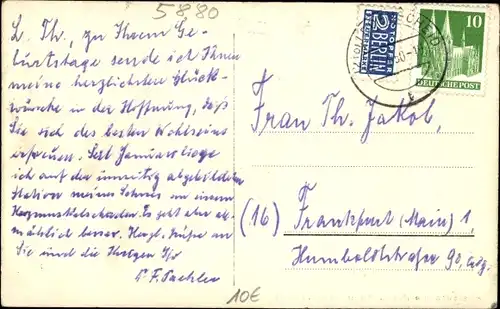 5880
L. Th., zu Ihrem Ge-
burtstage sende ich Ihnen
meine herzlichsten Glück-
wünsche in der Hoffnung, daß
Sie sich des besten Wohlseins
erfreuen. Seit Januar liege
ich auf der umseitig abgebildeten
Station meines Sohnes an einem
Herzmuskelschaden. Es geht aber all-
mählich besser. Herzl. Grüße an
Sie und die Ihrigen
NOTOPFER
2 BERLIN
STEUERMARKE
10
DEUTSCHE POST
Frau Th. Jakob,
(16) Frankfurt (Main) 1,
Humboldtstraße 90,
10€